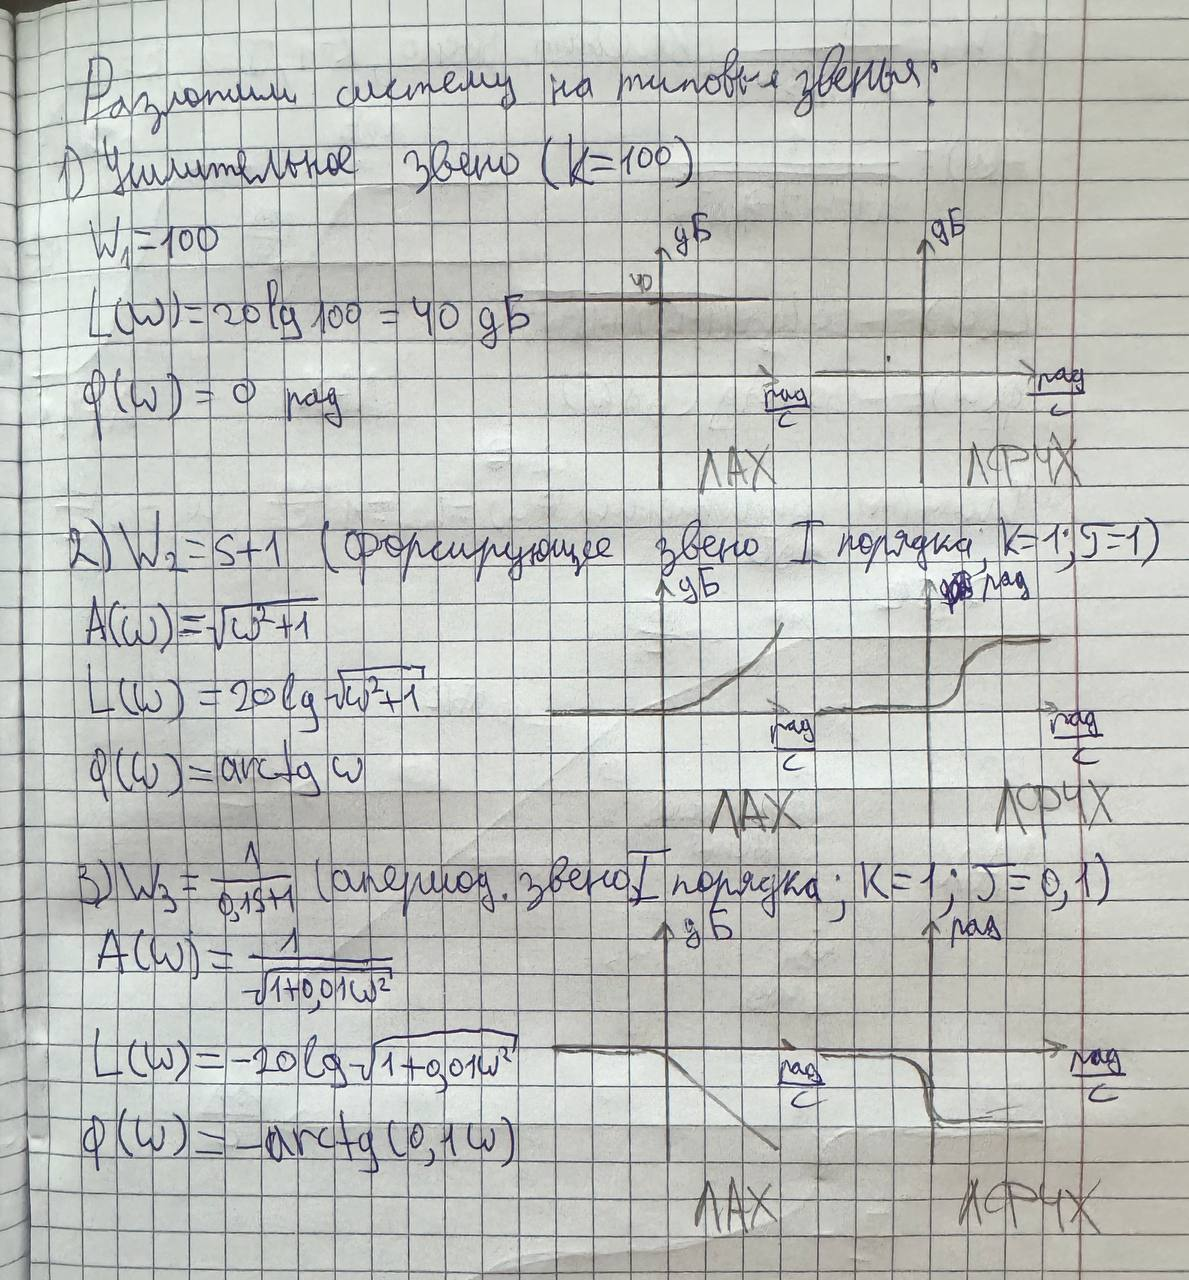 Разложим систему на типовые звенья:
1) Усилительное звено (K=100)
W₁=100
дБ
дБ
40
L(ω)=20lg 100 = 40 дБ
φ(ω) = 0 рад
рад/с
рад/с
ЛАХ
ЛФЧХ
2) W₂=s+1 (форсирующее звено I порядка; K=1; T=1)
дБ
рад
A(ω)=√(ω²+1)
L(ω) = 20lg√(ω²+1)
φ(ω)=arctg ω
рад/с
рад/с
ЛАХ
ЛФЧХ
3) W₃= 1/(0,1s+1) (апериод. звено I порядка; K=1; T=0,1)
дБ
рад
A(ω)= 1/√(1+0,01ω²)
L(ω)=-20lg√(1+0,01ω²)
φ(ω)=-arctg(0,1ω)
рад/с
рад/с
ЛАХ
ЛФЧХ